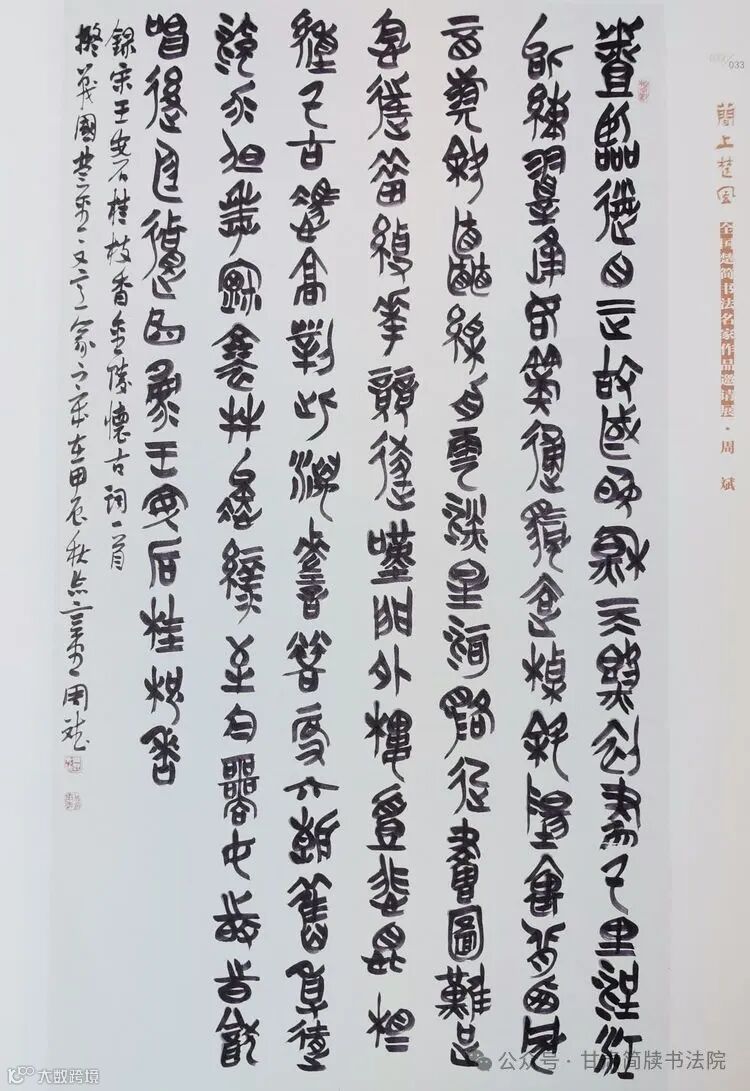 033
簡上楚風
全国楚简书法名家作品邀请展·周 斌
登臨送目正故國晚秋天氣初肅千里澄江
似練翠峰如簇歸帆去棹斜陽裏背西風
酒旗斜矗彩舟雲淡星河鷺起畫圖難足
念往昔繁華競逐嘆門外樓頭悲恨相
續千古憑高對此漫嗟榮辱六朝舊事隨
流水但寒煙衰草凝綠至今商女時時猶
唱後庭遺曲王安石桂枝香
錄宋王安石桂枝香金陵懷古詞一首
擬戰國楚金文意 在甲辰秋 周斌
公众号·甘肃简牍书法院
大数跨境